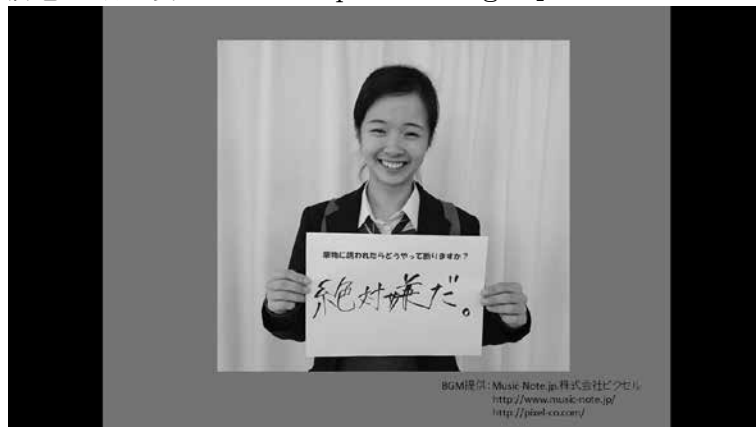 薬物に誘われたらどうやって断りますか?
絶対嫌だ。
BGM提供：Music-Note.jp,株式会社ピクセル
http://www.music-note.jp/
http://pixel-co.com/